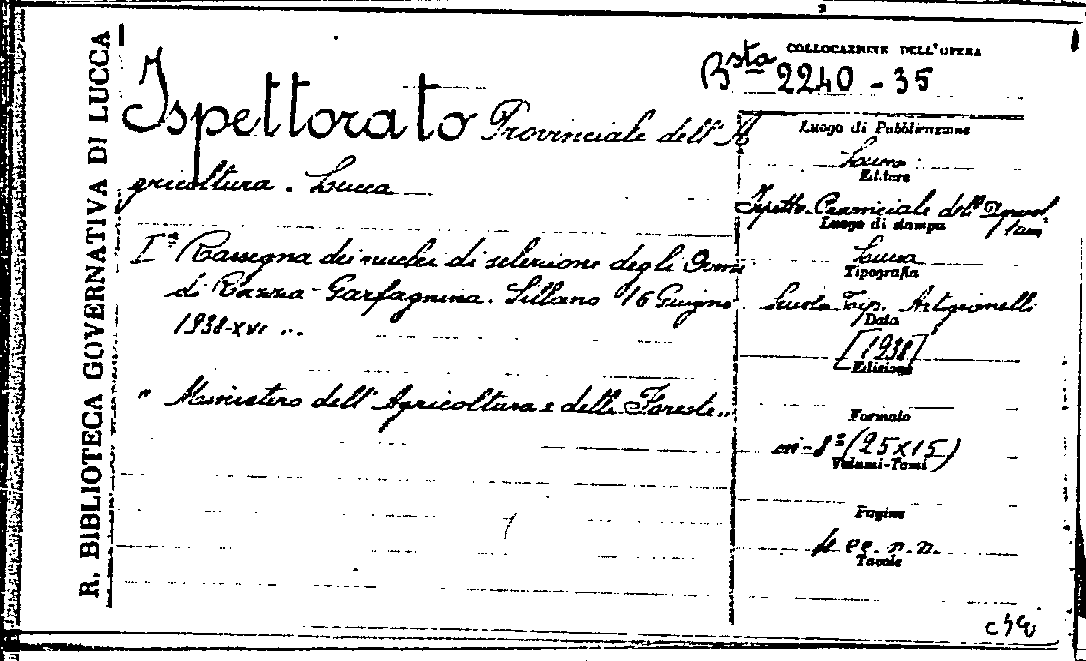 R. BIBLIOTECA GOVERNATIVA DI LUCCA
COLLOCAZIONE DELL'OPERA
Bsta 2240 - 35
Ispettorato Provinciale dell'A
gricoltura. Lucca
Iª Rassegna dei nuclei di selezione degli Ovini
di Razza Garfagnina. Sillano 16 Giugno
1938-XVI ..
" Ministero dell'Agricoltura e delle Foreste "
Luogo di Pubblicazione
Lucca
Editore
Ispetto. Provinciale dell'
Luogo di stampa
Lucca
Tipografia
Scuola Tip. Artigianelli
Data
[1938]
Edizione
Formato
in-8º (25x15)
Volumi-Tomi
Pagine
4 cc. n.n.
Tavole